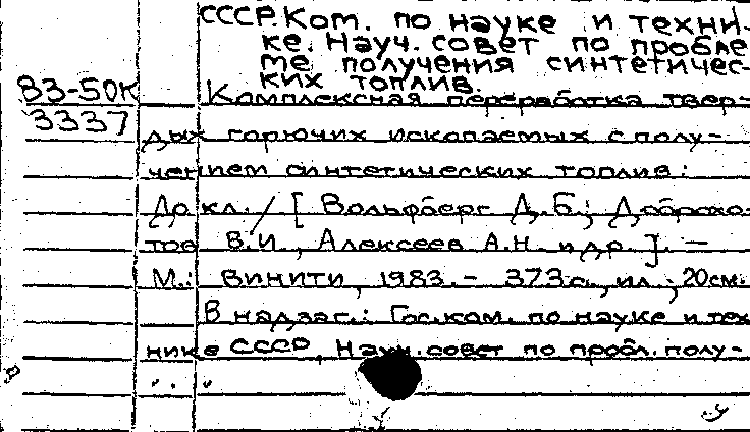 СССР. Ком. по науке и техни-
ке. Науч. совет по пробле
ме получения синтетичес-
ких топлив.
83-50К
3337
Комплексная переработка твер-
дых горючих ископаемых с полу-
чением синтетических топлив:
Докл. / [Вольфберг Д.Б.; Доброхо-
тов В.И., Алексеев А.Н. и др.]. —
М.: ВИНИТИ, 1983. - 373 с., ил.; 20см.
В надзаг.: Гос. ком. по науке и тех
нике СССР, Науч. совет по пробл. полу-